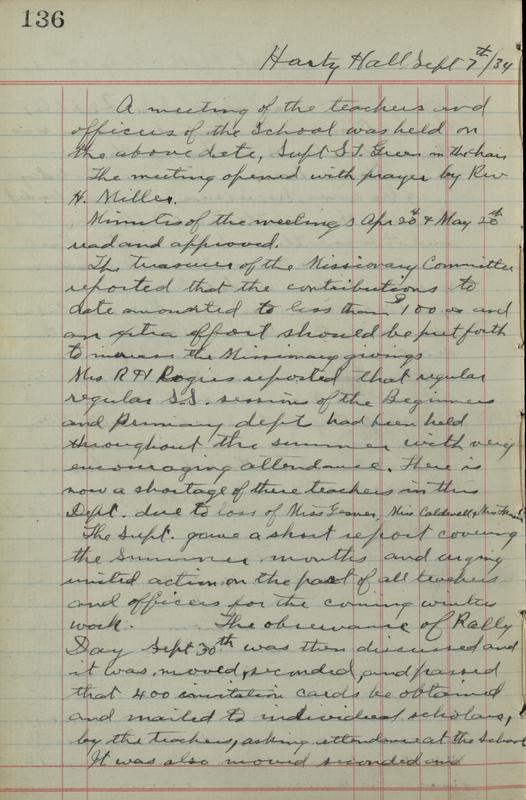 136
Harty Hall Sept 7th/34
A meeting of the teachers and
officers of the School was held on
the above date, Supt S.T. Green in the chair
The meeting opened with prayer by Rev
H. Miller.
Minutes of the meetings Apr 20th & May 20th
read and approved.
The treasurer of the Missionary Committee
reported that the contributions to
date amounted to less than $100 00 and
an extra effort should be put forth
to increase the Missionary givings
Mrs R H Rogers reported that regular
regular S.S. sessions of the Beginners
and Primary dept had been held
throughout the summer with very
encouraging attendance. There is
now a shortage of three teachers in this
Dept. due to loss of Miss Miss Caldwell, & Miss
The Supt. gave a short report covering
the Summer months and urging
united action on the part of all teachers
and officers for the coming winter
work. The observance of Rally
Day Sept 30th was then discussed and
it was moved, seconded, and passed
that 400 invitation cards be obtained
and mailed to individual scholars,
by the teachers, asking attendance at the School
It was also moved seconded and